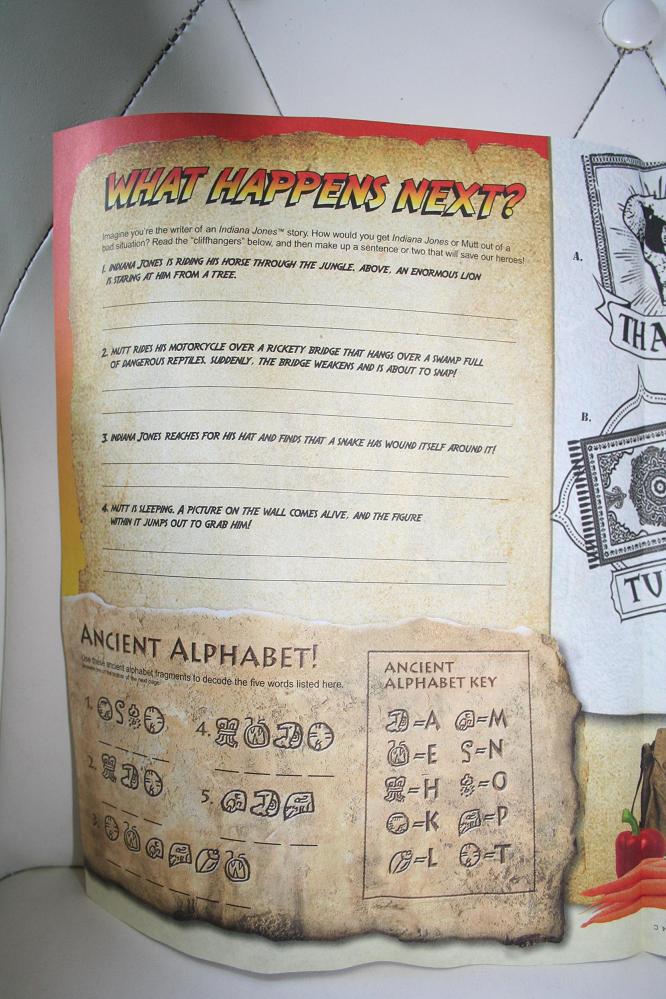 WHAT HAPPENS NEXT?
Imagine you're the writer of an Indiana Jones™ story. How would you get Indiana Jones or Mutt out of a
bad situation? Read the "cliffhangers" below, and then make up a sentence or two that will save our heroes!
1. INDIANA JONES IS RIDING HIS HORSE THROUGH THE JUNGLE. ABOVE, AN ENORMOUS LION
IS STARING AT HIM FROM A TREE.
2. MUTT RIDES HIS MOTORCYCLE OVER A RICKETY BRIDGE THAT HANGS OVER A SWAMP FULL
OF DANGEROUS REPTILES. SUDDENLY, THE BRIDGE WEAKENS AND IS ABOUT TO SNAP!
3. INDIANA JONES REACHES FOR HIS HAT AND FINDS THAT A SNAKE HAS WOUND ITSELF AROUND IT!
4. MUTT IS SLEEPING. A PICTURE ON THE WALL COMES ALIVE, AND THE FIGURE
WITHIN IT JUMPS OUT TO GRAB HIM!
ANCIENT ALPHABET!
Use these ancient alphabet fragments to decode the five words listed here.
1.
2.
3.
4.
5.
ANCIENT
ALPHABET KEY
=A
=E
=H
=K
=L
=M
=N
=O
=P
=T
A.
THA
B.
TU